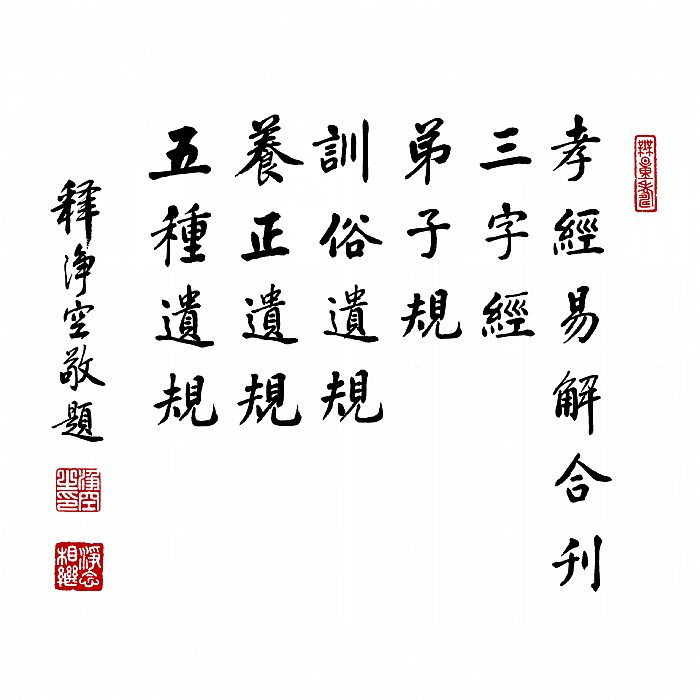 孝經易解合刊
三字經
弟子規
訓俗遺規
養正遺規
五種遺規
釋淨空敬題
淨空之印
淨念相繼